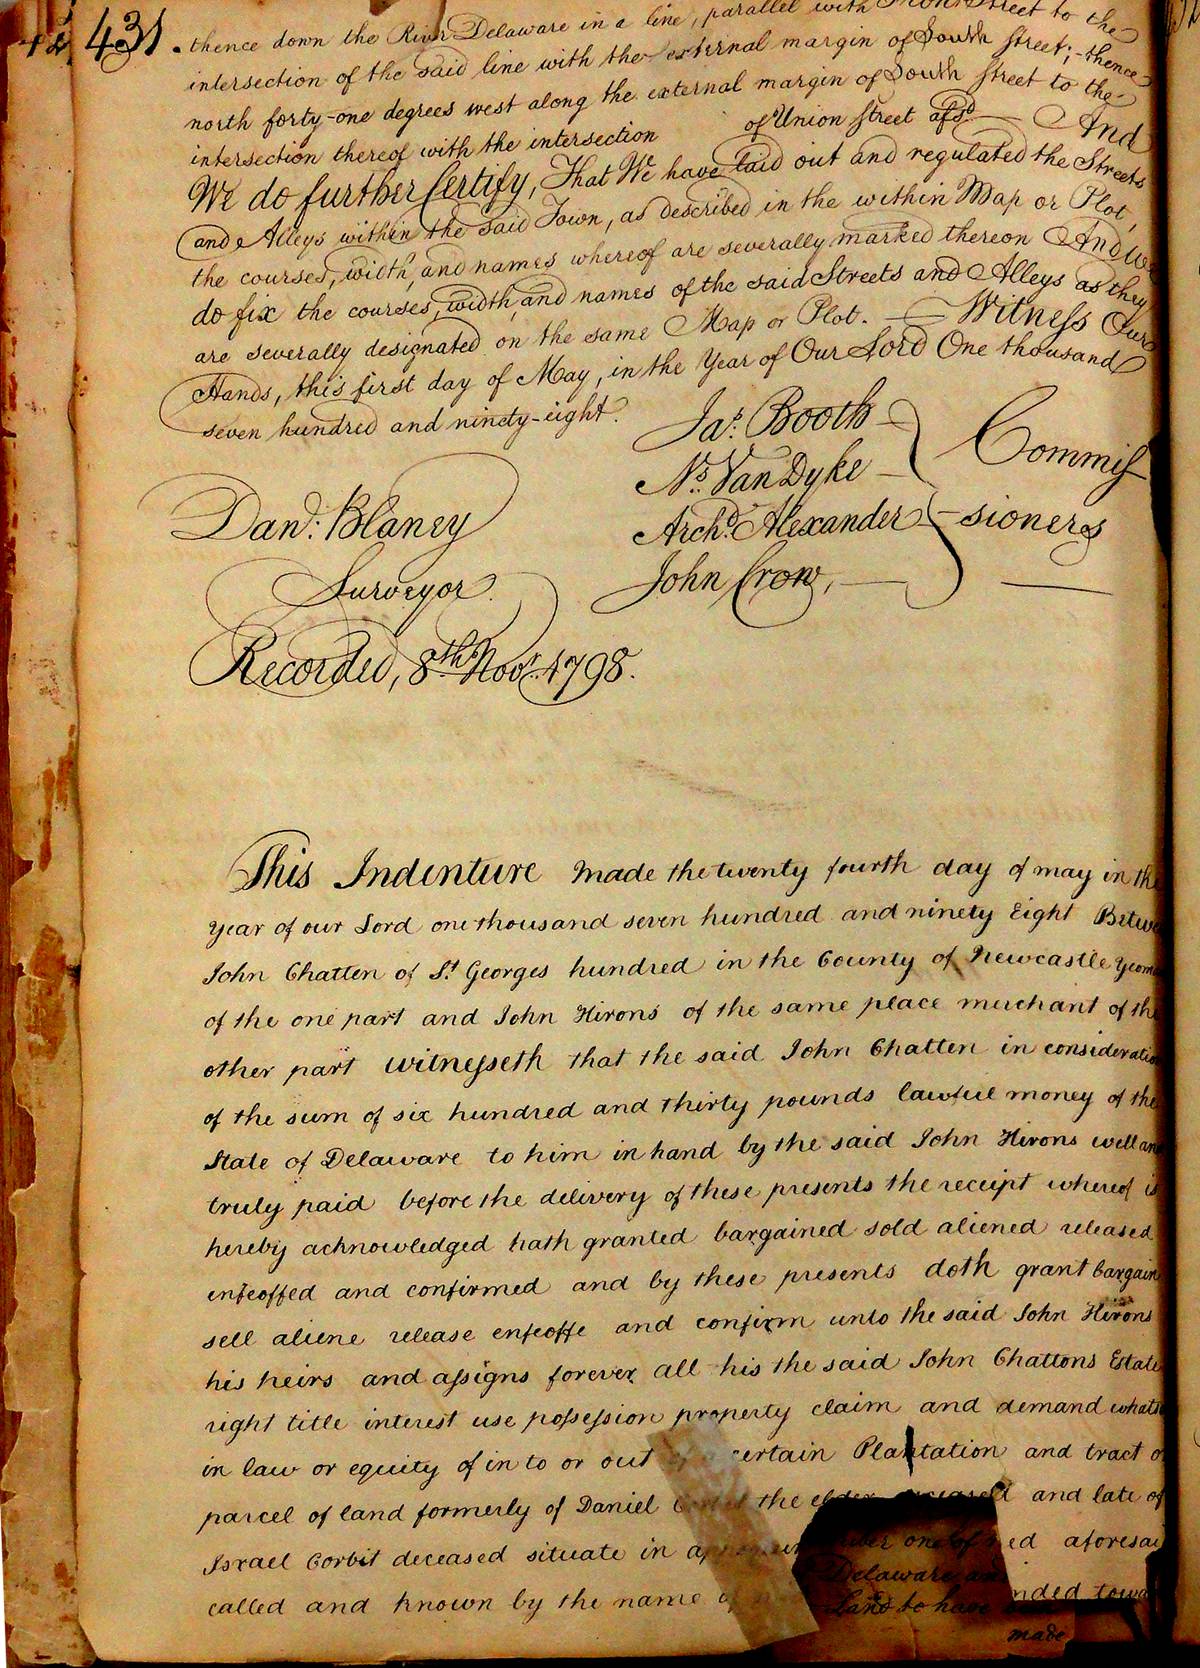 431.
thence down the River Delaware in a line, parallel with Front Street to the
intersection of the said line with the external margin of South Street; thence
north forty-one degrees west along the external margin of South Street to the
intersection thereof with the intersection of Union Street afsd. And
We do further Certify, That We have laid out and regulated the Streets
and Alleys within the said Town, as described in the within Map or Plot,
the courses, width, and names whereof are severally marked thereon And we
do fix the courses, width, and names of the said Streets and Alleys as they
are severally designated on the same Map or Plot. — Witness Our
Hands, this first day of May, in the Year of Our Lord One thousand
seven hundred and ninety-eight.
Jas. Booth
Ns. Van Dyke
Archd. Alexander
John Crow,
Commis
sioners
Danl. Blaney
Surveyor.
Recorded, 8th Novr. 1798.
This Indenture made the twenty fourth day of may in the
year of our Lord one thousand seven hundred and ninety Eight Betwe
John Chatten of St Georges hundred in the County of Newcastle yeom
of the one part and John Hirons of the same place merchant of the
other part witnesseth that the said John Chatten in consideratio
of the sum of six hundred and thirty pounds lawful money of the
State of Delaware to him in hand by the said John Hirons well an
truly paid before the delivery of these presents the receipt whereof is
hereby acknowledged hath granted bargained sold aliened released
enfeoffed and confirmed and by these presents doth grant bargain
sell aliene release enfeoffe and confirm unto the said John Hirons
his heirs and assigns forever all his the said John Chattons Estate
right title interest use possession property claim and demand whats
in law or equity of in to or out certain Plantation and tract or
parcel of land formerly of Daniel the elder deceased and late of
Israel Corbit deceased situate in one of aforesai
called and known by the name
Delaware an
Land to have
nded towa
made